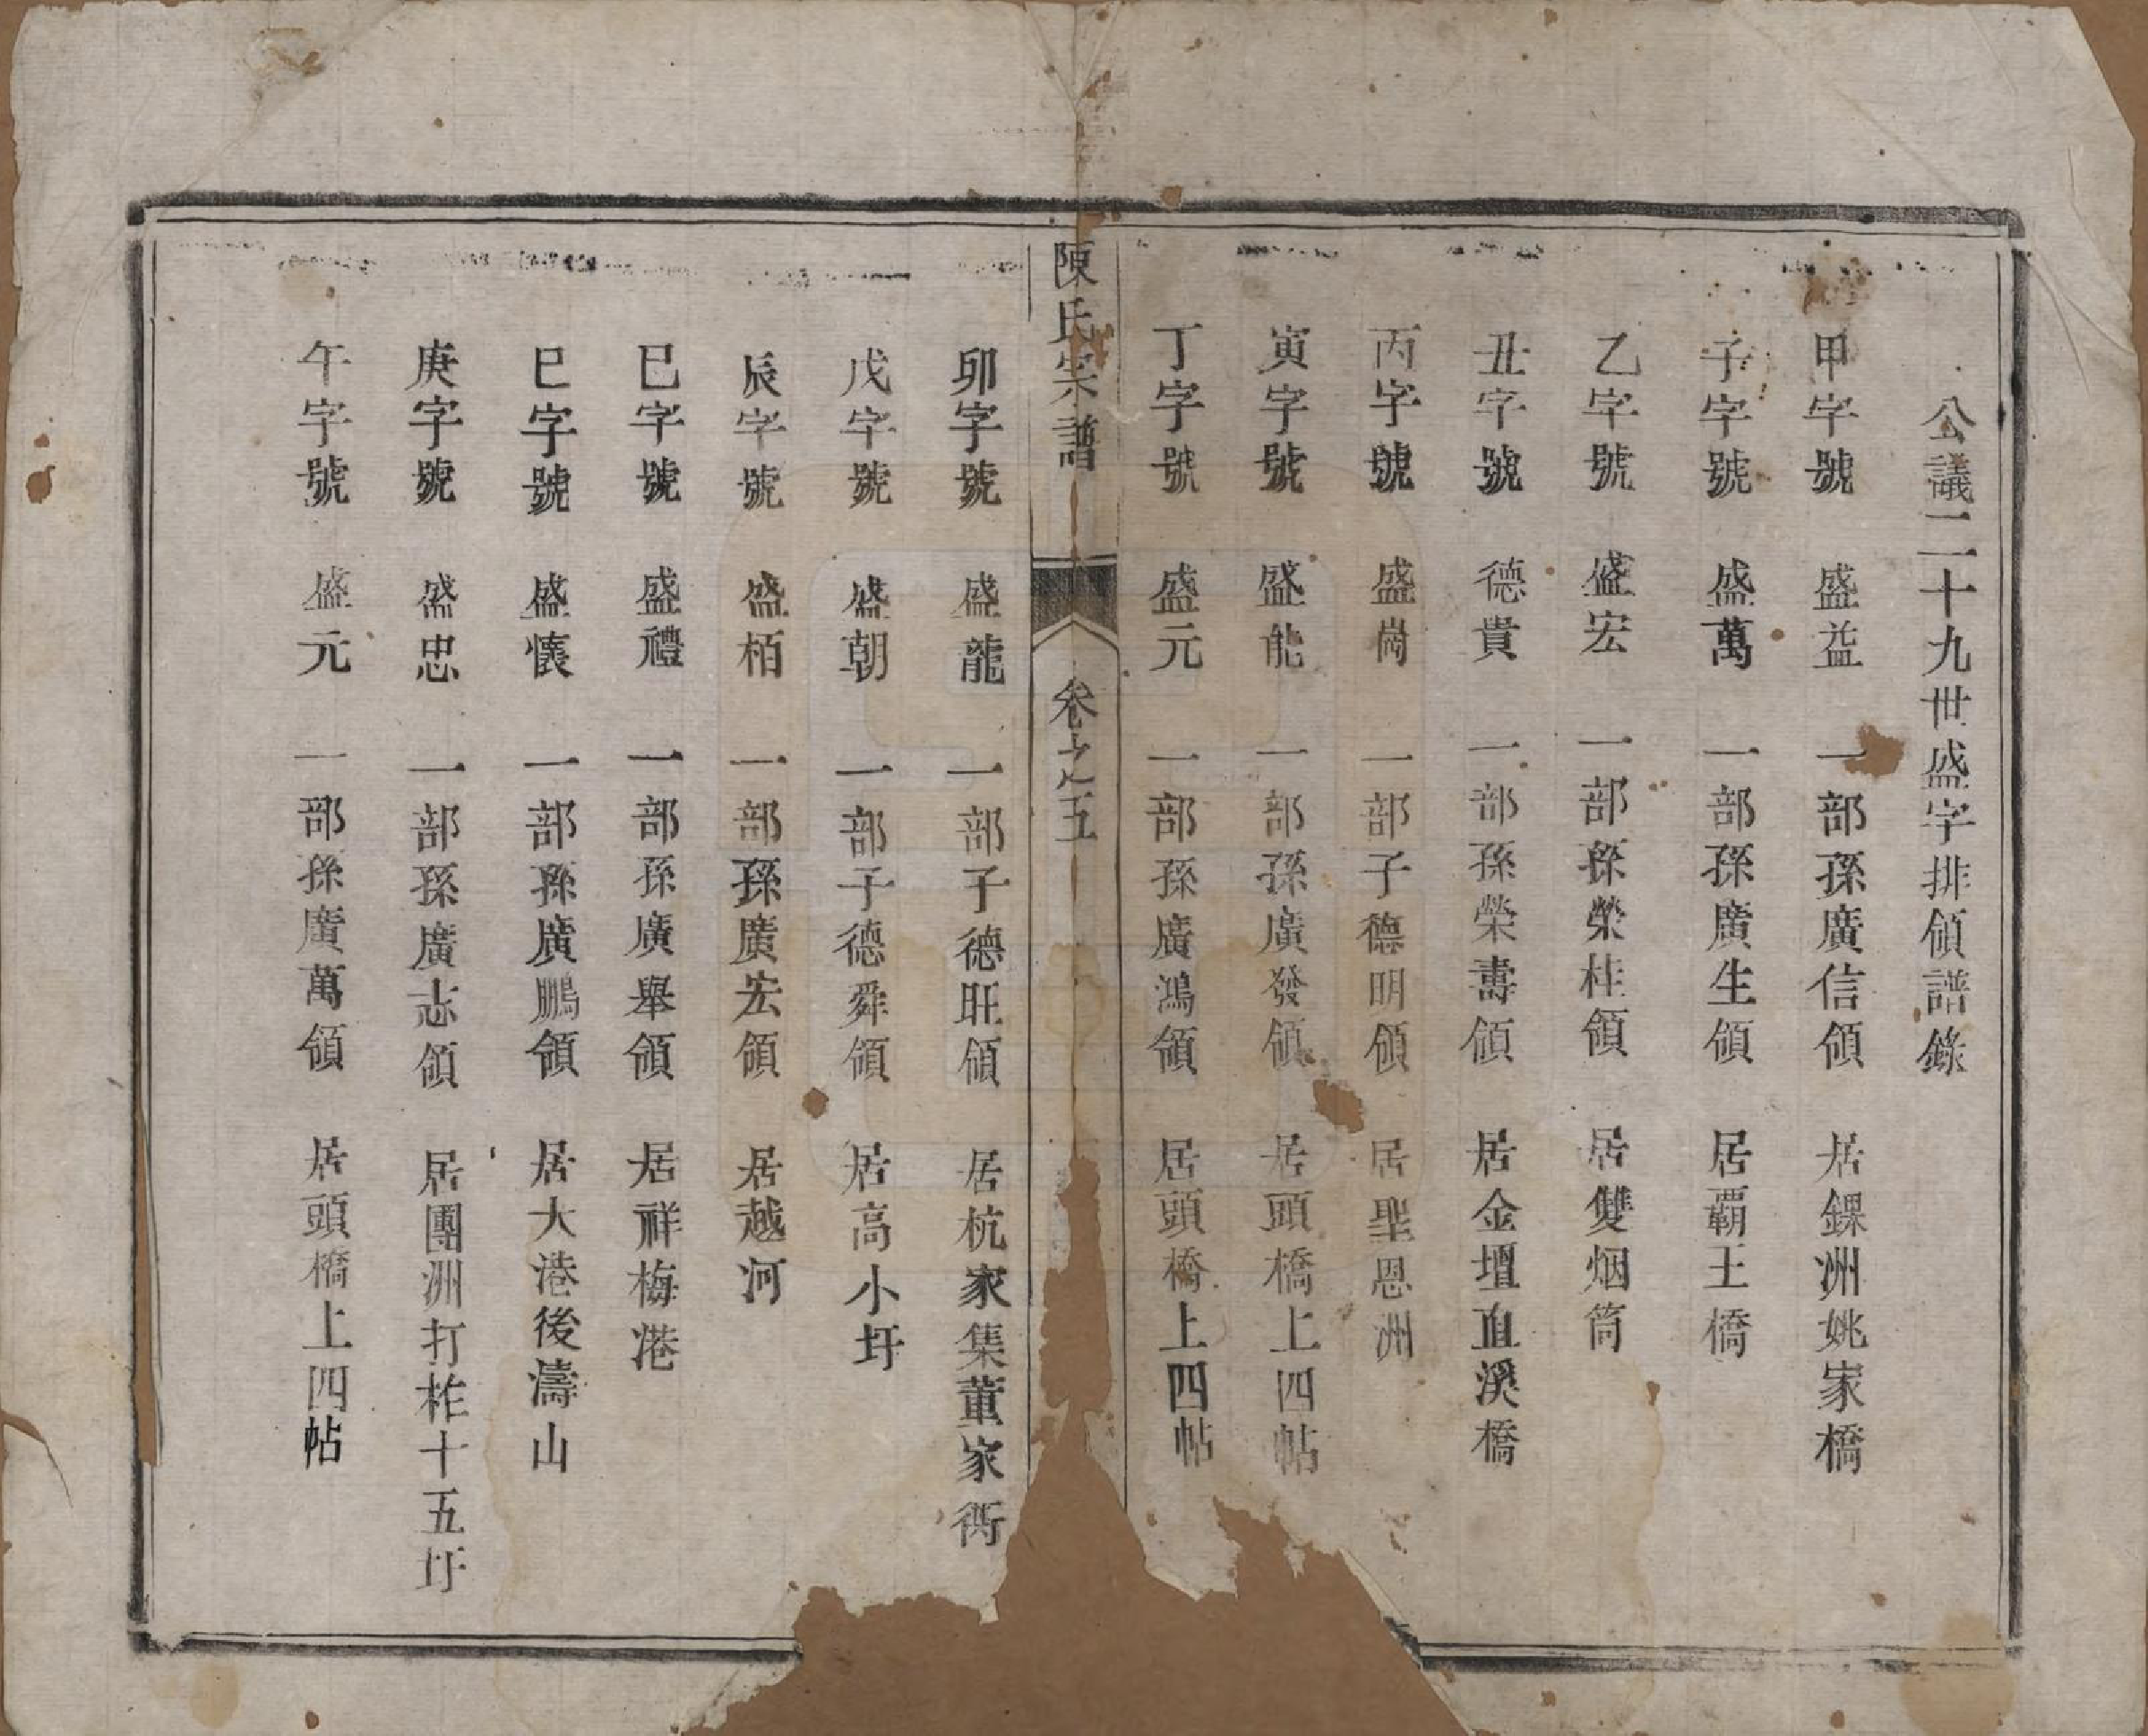 公議二十九世盛字排領譜錄
甲字號 盛益 一部孫廣信領 居錁洲姚家橋
子字號 盛萬 一部孫廣生領 居覇王橋
乙字號 盛宏 一部孫榮桂領 居雙烟筒
丑字號 德貴 一部孫榮壽領 居金壇直溪橋
丙字號 盛尚 一部子德明領 居聖恩洲
寅字號 盛能 一部孫廣發領 居頭橋上四帖
丁字號 盛元 一部孫廣鴻領 居頭橋上四帖
陳氏宗譜 卷之五
卯字號 盛龍 一部子德旺領 居杭家集董家衖
戊字號 盛朝 一部子德舜領 居高小圩
辰字號 盛栢 一部孫廣宏領 居越河
巳字號 盛禮 一部孫廣舉領 居祥梅港
巳字號 盛懷 一部孫廣鵬領 居大港後濤山
庚字號 盛忠 一部孫廣志領 居團洲打柞十五圩
午字號 盛元 一部孫廣萬領 居頭橋上四帖